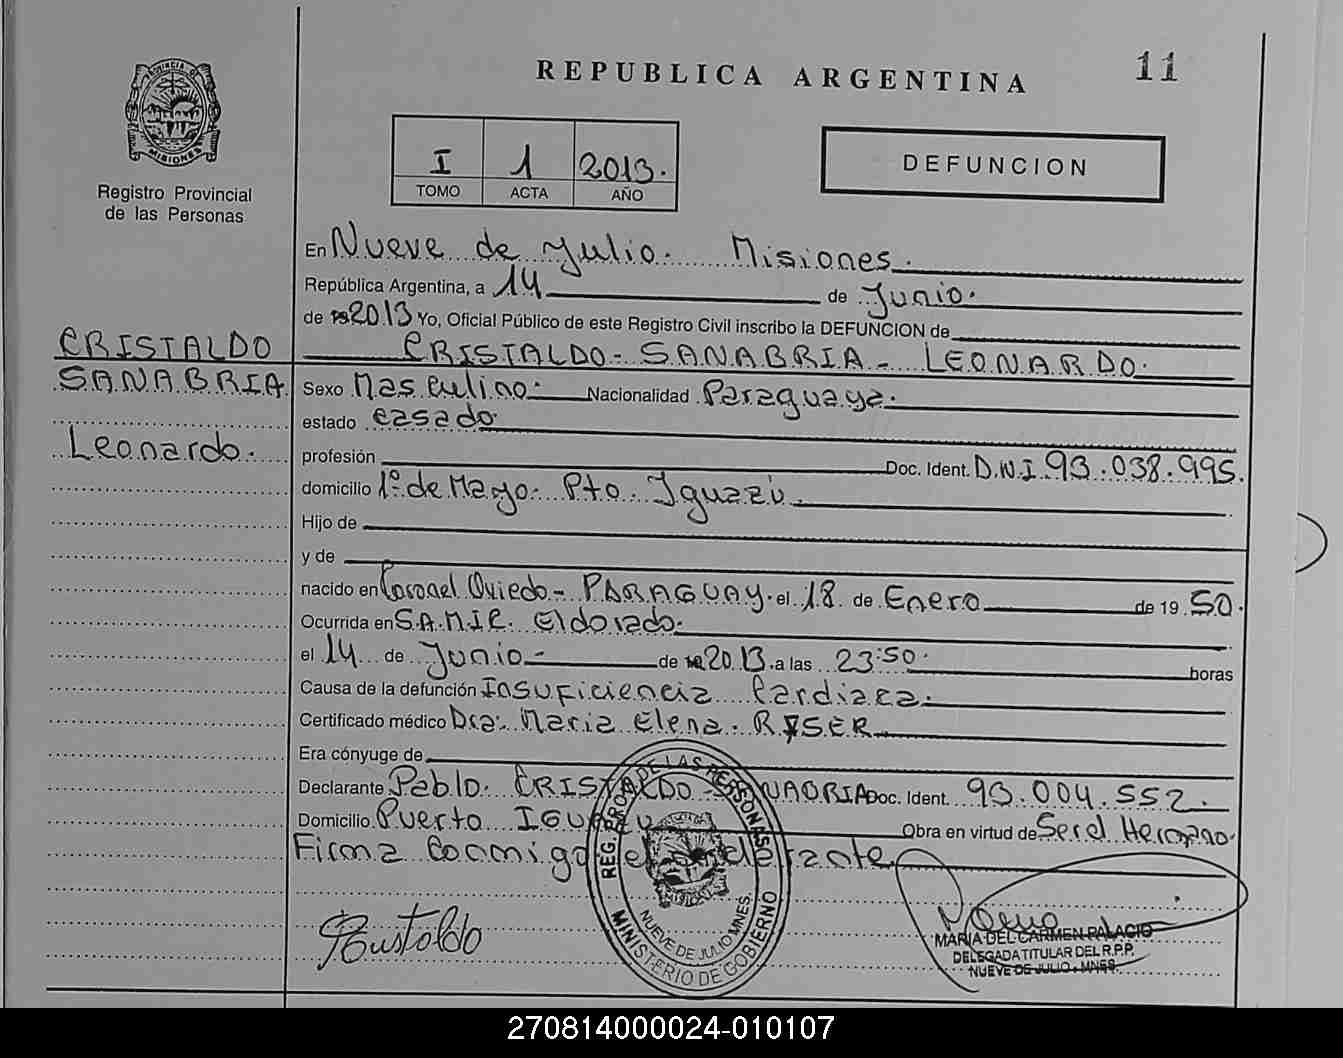 REPUBLICA ARGENTINA
11
PROVINCIA D
MISIONES
Registro Provincial
de las Personas
I 1 2013.
TOMO ACTA AÑO
DEFUNCION
En Nueve de Julio. Misiones.
República Argentina, a 14 de Junio.
de 2013 Yo, Oficial Público de este Registro Civil inscribo la DEFUNCION de
CRISTALDO
SANABRIA
Leonardo.
CRISTALDO - SANABRIA - LEONARDO.
Sexo Masculino. Nacionalidad Paraguaya.
estado casado
profesión Doc. Ident. D.N.I. 93.038.995.
domicilio 1º de Mayo. Pto. Iguazú
Hijo de
y de
nacido en Coronel Oviedo - PARAGUAY. el 18 de Enero de 19 50.
Ocurrida en S.A.M.I.C. Eldorado.
el 14 de Junio - de 2013. a las 23:50. horas
Causa de la defunción Insuficiencia Cardiaca.
Certificado médico Dra. Maria Elena.
Era cónyuge de
Declarante Pablo. CRISTALDO Doc. Ident. 93.004.552.
Domicilio Puerto Obra en virtud de Ser el Hermano.
Firma Conmigo el
REG. PROV. DE LAS PERSONAS
NUEVE DE JULIO MNES.
MINISTERIO DE GOBIERNO
MARIA DEL CARMEN PALACIO
DELEGADA TITULAR DEL R.P.P.
NUEVE DE JULIO - MNES.
270814000024-010107